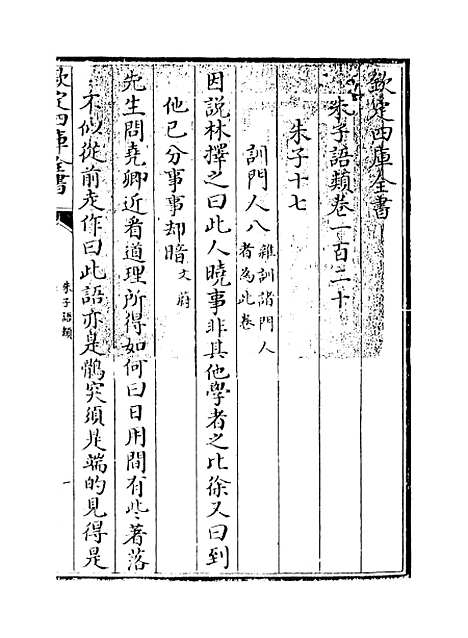 欽定四庫全書
朱子語類卷一百二十
朱子十七
訓門人八
雜訓諸門人
者為此卷
因說林擇之曰此人曉事非其他學者之比徐又曰到
他已分事事却暗
文蔚
先生問堯卿近看道理所得如何曰日用間有些著落
不似從前走作曰此語亦是鶻突須是端的見得是
欽定四庫全書
朱子語類
一